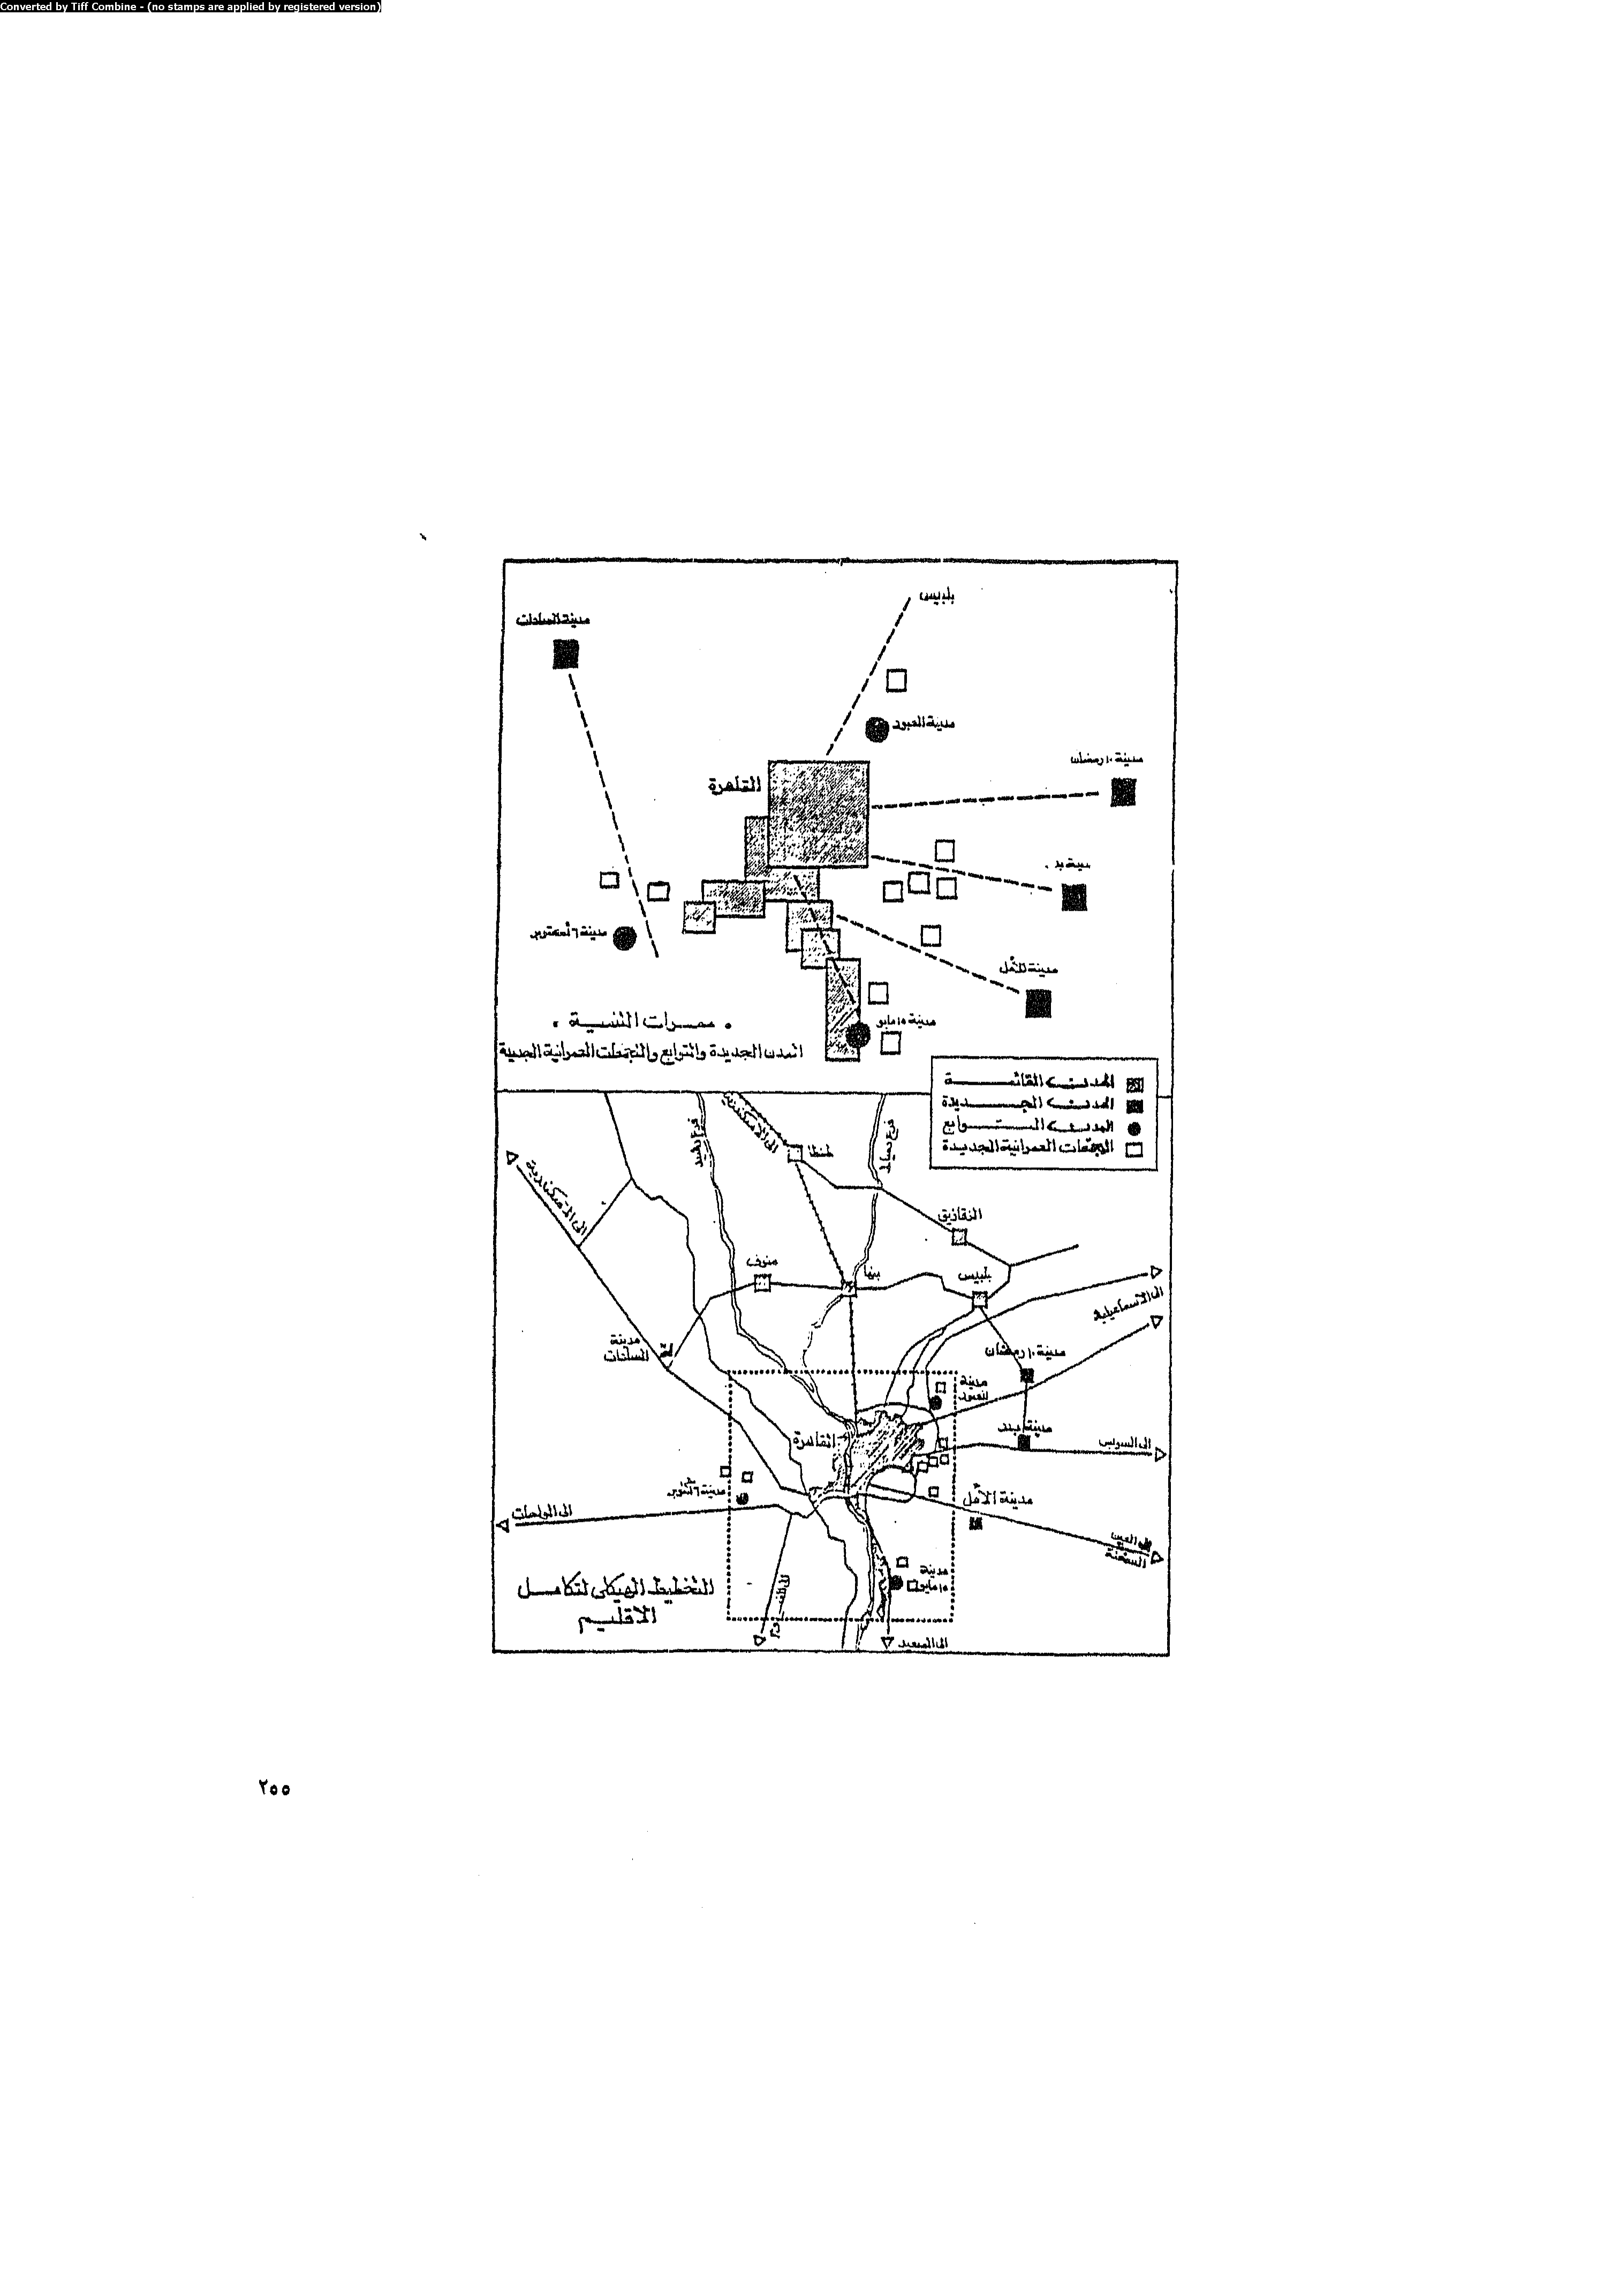 Converted by Tiff Combine - (no stamps are applied by registered version)
بلبيس
مدينة السادات
مدينة العبور
مدينة ١٠ رمضان
القاهرة
مدينة ٦ أكتوبر
مدينة الأمل
مدينة ١٥ مايو
. ممرات التنمية .
المدن الجديدة والتوابع والتجمعات العمرانية الجديدة
المدن القائمة
المدن الجديدة
المدن التوابع
التجمعات العمرانية الجديدة
فرع رشيد
الى الاسكندرية
طنطا
فرع دمياط
الى الاسكندرية
الزقازيق
منوف
بنها
بلبيس
الى الاسماعيلية
مدينة
السادات
مدينة ١٠ رمضان
مدينة
العبور
مدينة بدر
القاهرة
الى السويس
مدينة ٦ أكتوبر
مدينة الأمل
الى الواحات
الى العين
السخنة
مدينة
١٥ مايو
التخطيط الهيكلى لتكامل
الاقليم
الى الفيوم
الى الصعيد
٢٥٥